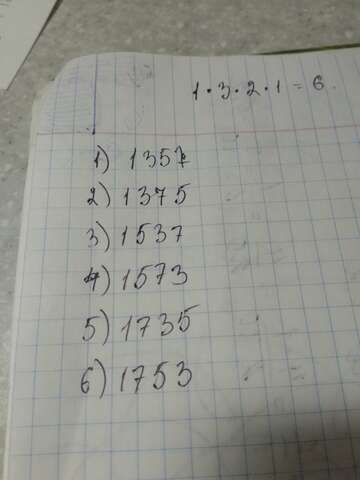 1·3·2·1=6.
1) 1357
2) 1375
3) 1537
4) 1573
5) 1735
6) 1753